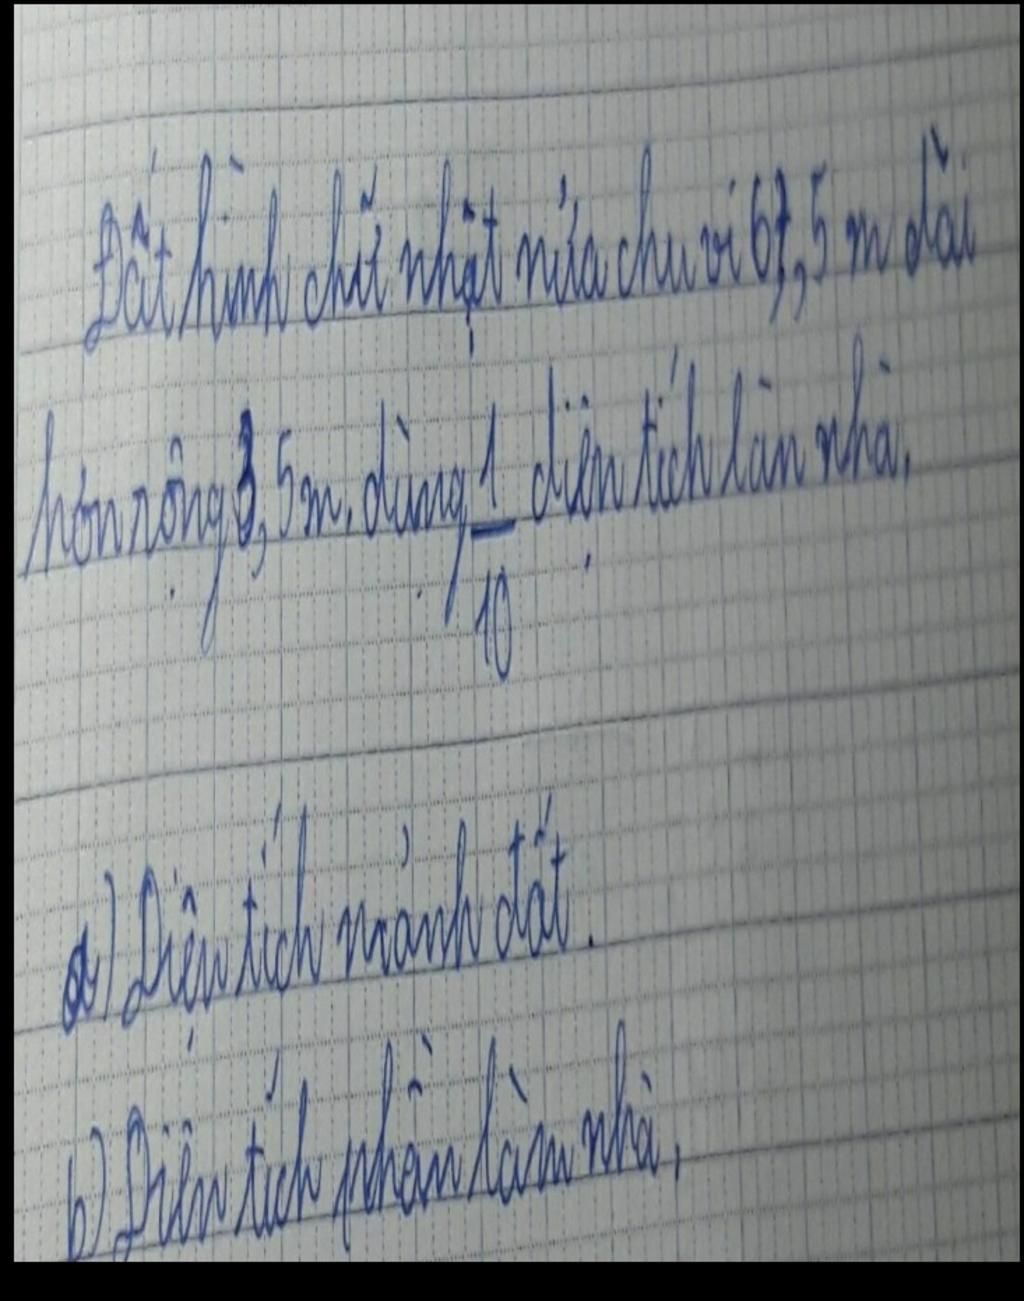 Đất hình chữ nhật nửa chu vi 67,5 m dài
hơn rộng 3,5m. dùng 1/10 diện tích làn nhà.
a) Diện tích mảnh đất.
b) Diện tích phần làm nhà.